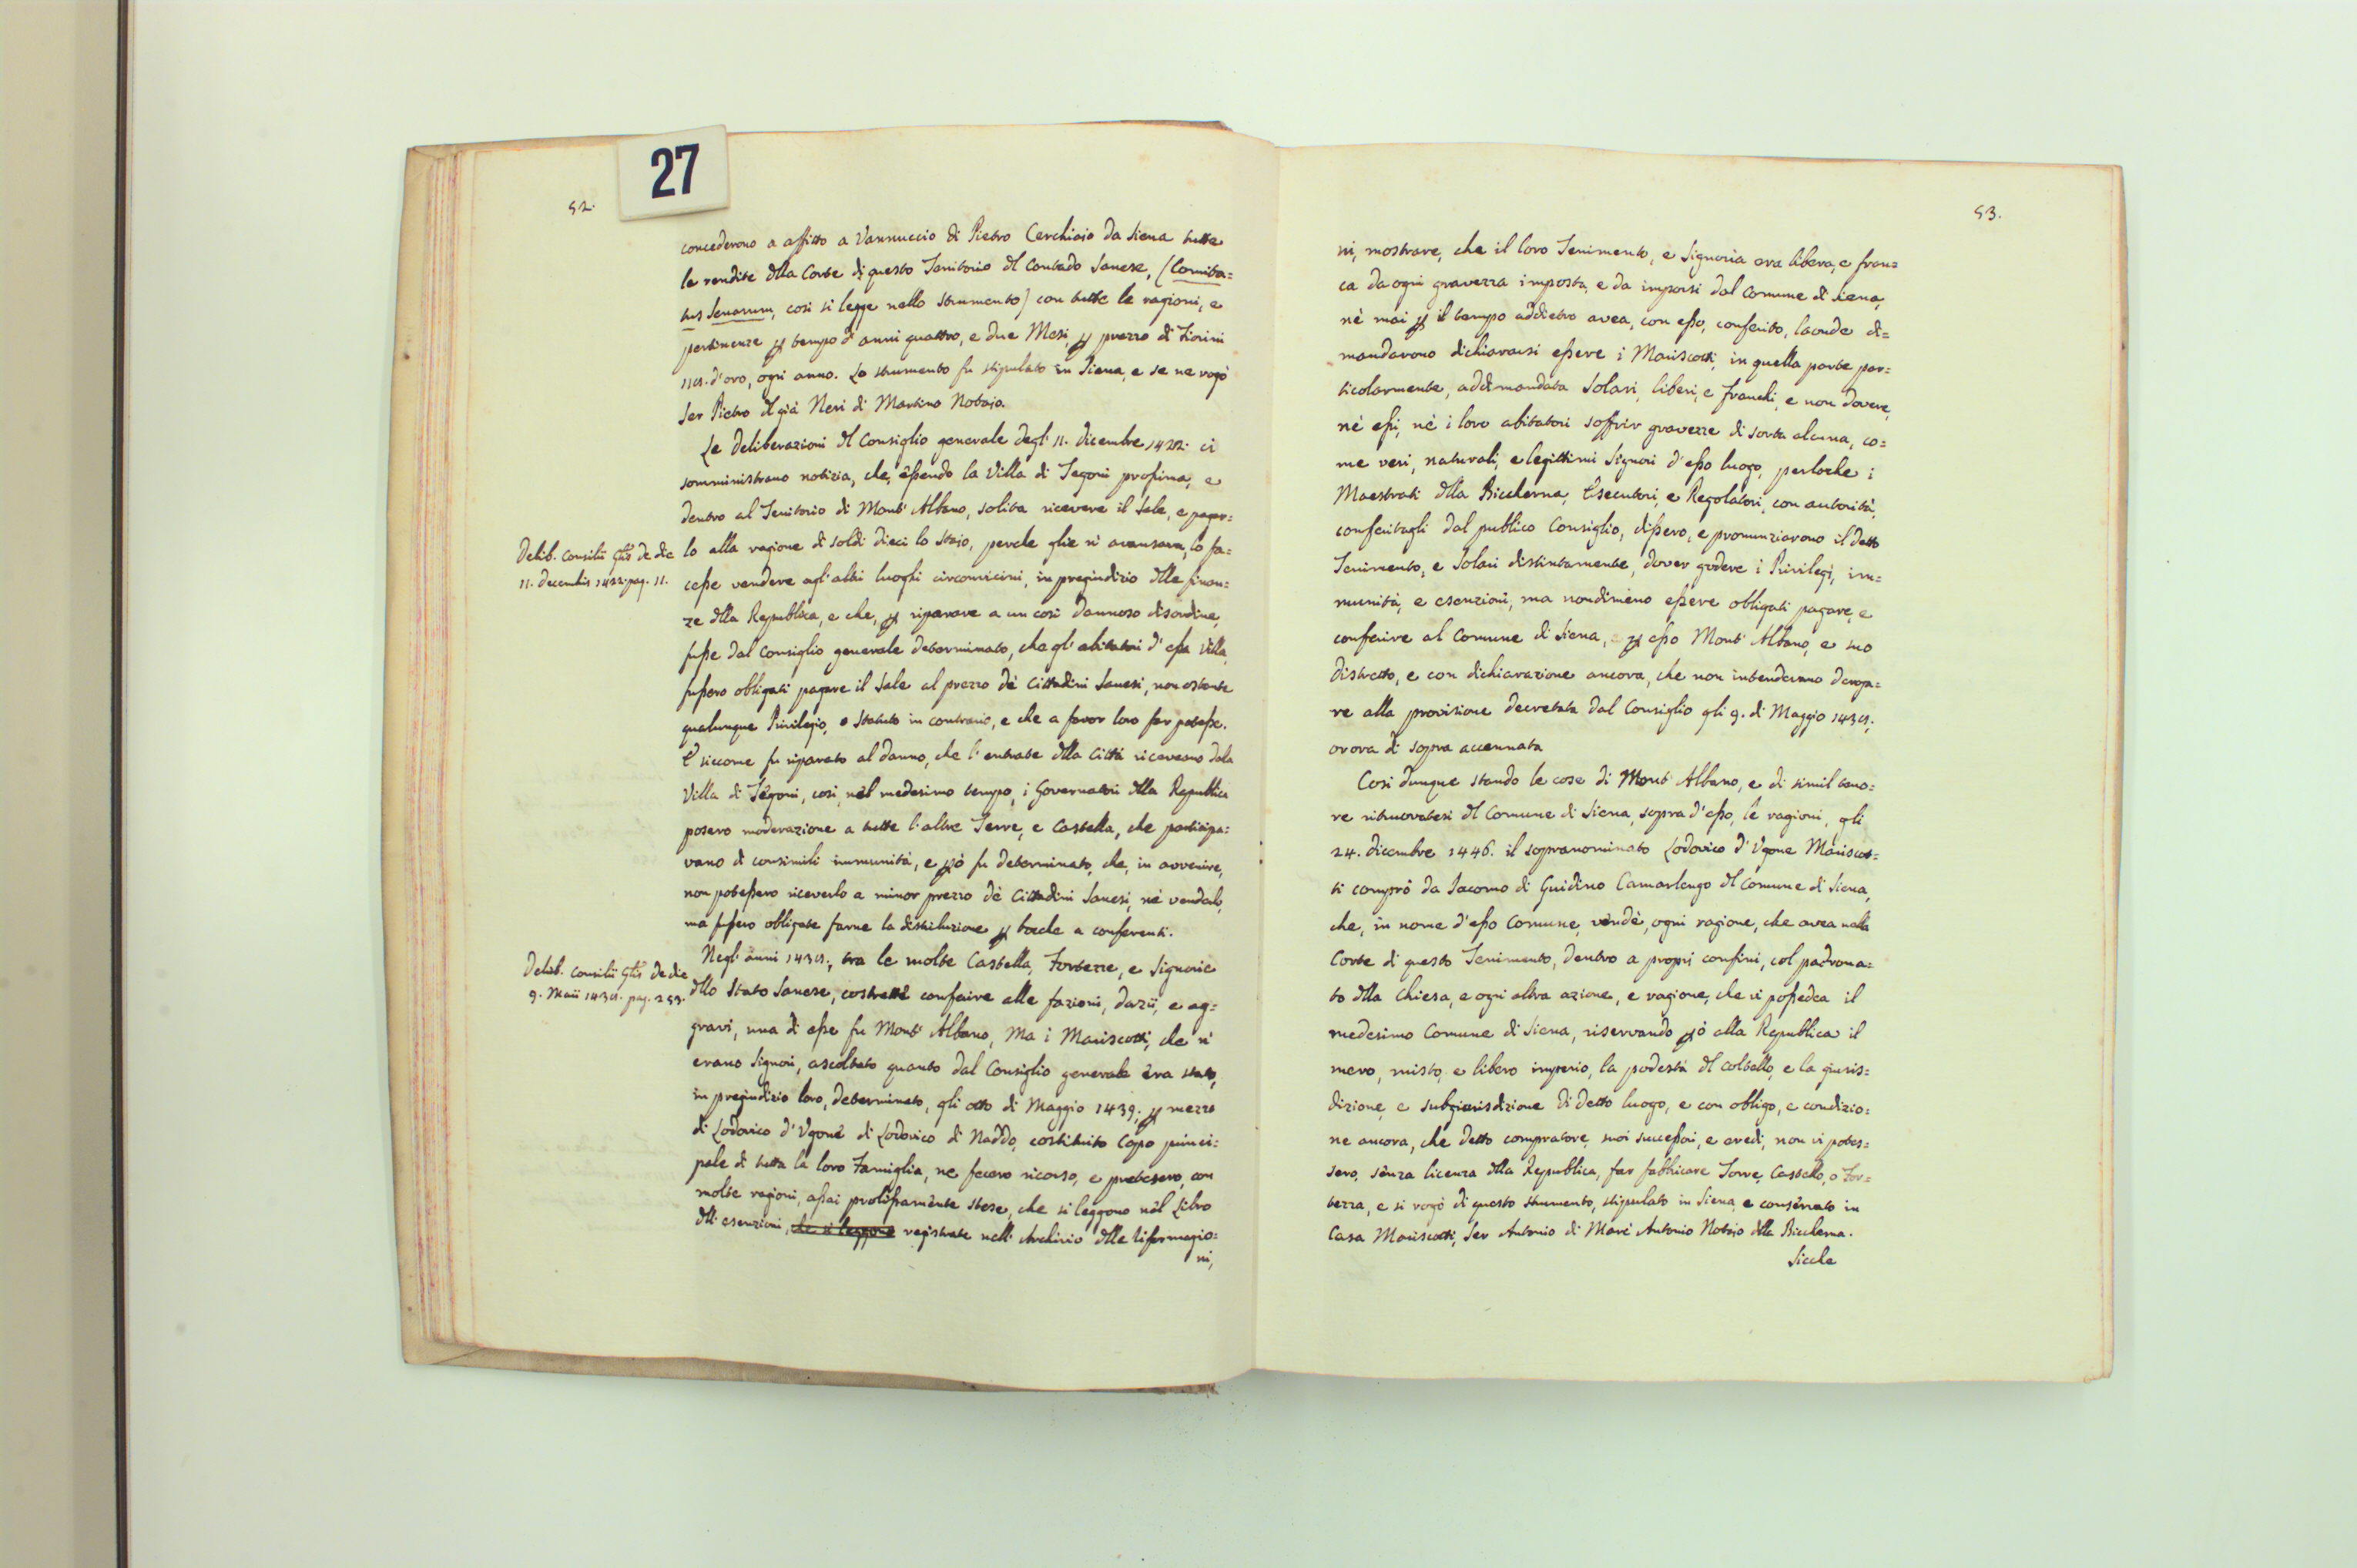 27
52.
concederono a affitto a Vannuccio di Pietro Cerchiaio da Siena tutte
le rendite dlla Corte di questo Territorio dl Contado Sanese, (Comita=
tus Senarum, così si legge nello strumento) con tutte le ragioni, e
pertinenze p tempo di anni quattro, e due Mesi, p prezzo di Fiorini
d'oro, ogni anno. Lo strumento fu stipulato in Siena, e se ne rogò
Ser Pietro dl già Neri di Martino Notaio.
Le deliberazioni dl Consiglio generale degl' 11. dicembre 1422. ci
somministrano notizia, che, èssendo la Villa di Tegoni prossima, e
dentro al Territorio di Mont' Albano, solita ricevere il Sale, e pagar=
Delib. Consilii Gñlis de die
11. decembris 1422. pag. 11.
lo alla ragione di soldi dieci lo staio, perche gliè n' avansava, lo fa=
cesse vendere agl' altri luoghi circonvicini, in pregiudizio dlle finan=
ze dlla Republica, e che, p riparare a un così dannoso disordine,
fusse dal Consiglio generale determinato, che gl' abitatori d' essa Villa,
fussero obligati pagare il Sale al prezzo dè Cittadini Sanesi, non ostante
qualunque Privilegio, o Statuto in contrario, e che a favor loro far potesse.
E siccome fu riparato al danno, che l' entrate dlla Città ricevevano dala
Villa di Tègoni, così, nèl medesimo tempo, i Governatori dlla Republica
posero moderazione a tutte l' altre Terre, e Castella, che participa=
vano di consimili immunità, e pò fu determinato, che, in avvenire,
non potessero riceverlo a minor prezzo dè Cittadini Sanesi, nè venderlo,
ma fussero obligate farne la distribuzione p bocche a conferenti.
Delib. Consilii Gñlis de die
9. Maii pag. 253.
Negl' anni tra le molte Castella, Fortezze, e Signorie
dllo Stato Sanese, costrette conferire alle fazioni, dazii, e ag=
gravi, una di esse fu Mont' Albano, Ma i Mariscotti, che n'
erano Signori, ascoltato quanto dal Consiglio generale èra stato,
in pregiudizio loro, determinato, gli otto di Maggio 1439. p mezzo
di Lodovico d' Vgone di Lodovico di Naddo, costituito Capo princi=
pale di tutta la loro Famiglia, ne fecero ricorso, e pretesero, con
molte ragioni, assai prolissamènte stese, che si leggono nèl Libro
dll' esenzioni, che si leggono registrate nell' Archivio dlle Riformagio=
ni,
53.
ni, mostrare, che il loro Tenimento, e Signoria era libera, e fran=
ca da ogni gravezza imposta, e da imporsi dal Comune di Siena,
nè mai p il tempo addietro avea, con esso, conferito, laonde di=
mandarono dichiararsi essere i Mariscotti, in quella parte par=
ticolarmente, addimandata Solari, liberi, e franchi, e non dovere,
nè essi, nè i loro abitatori soffrir gravezze di sorta alcuna, co=
me veri, naturali, e legittimi Signori d' esso luogo, perloche i
Maestrati dlla Biccherna, Esecutori, e Regolatori, con autorità,
conferitagli dal publico Consiglio, dissero, e pronunziarono il detto
Tenimento, e Solari distintamente, dover godere i Privilegi, im=
munità, e esenzioni, ma nondimeno essere obligati pagare, e
conferire al Comune di Siena, p esso Mont' Albano, e suo
distretto, e con dichiarazione ancora, che non intendevano deroga=
re alla provisione decretata dal Consiglio gli 9. di Maggio
orora di sopra accennata
Così dunque stando le cose di Mont' Albano, e di simil teno=
re ritruovatesi dl Comune di Siena, sopra d' esso, le ragioni, gli
24. dicembre 1446. il sopranominato Lodovico d' Vgone Mariscot=
ti comprò da Iacomo di Guidino Camarlengo dl Comune di Siena,
che, in nome d' esso Comune, vendè, ogni ragione, che avea nella
Corte di questo Tenimento, dentro a propri confini, col padrona=
to dlla Chiesa, e ogni altra azione, e ragione, che vi possedea il
medesimo Comune di Siena, riservando pò alla Republica il
mero, misto, e libero imperio, la podestà dl coltello, e la giuris=
dizione, e subgiurisdizione di detto luogo, e con obligo, e condizio=
ne ancora, che detto compratore, suoi successori, e eredi, non vi potes=
sero, sènza licenza dlla Republica, far fabbricare Torre, Castello, o For=
tezza, e si rogò di questo strumento, stipulato in Siena e consèrvato in
Casa Mariscotti, Ser Antonio di Mare' Antonio Notaio dlla Biccherna.
Sicche